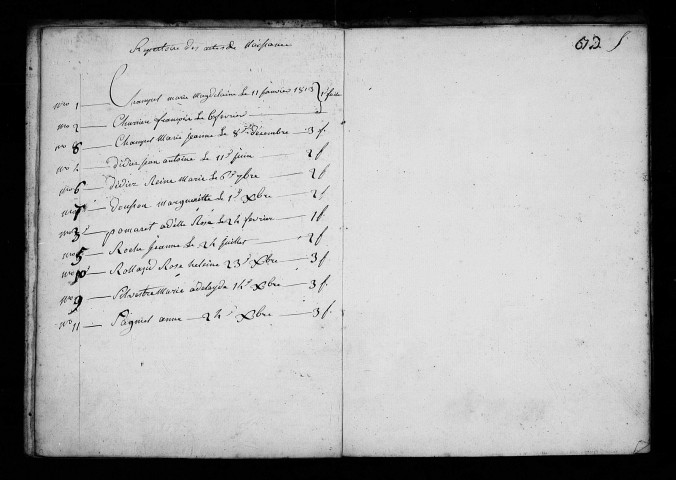 Repertoire des actes de Naissance
Nro 1 — Champel marie Magdelaine le 11 janvier 1813 1r feuille
Nro 2 — françoise le 6 fevrier
no 8 — Champel Marie jeanne le 8e décembre — 3 f.
Nro 4 — didier jean antoine le 11e juin — 2 f
Nro 6 — didier Reine Marie le 6e 7bre — 2 f
Nro 7 — margueritte le 1er Xbre — 2 f
Nro 3 — pomaret adélle Rose le 24 fevrier — 1 f
Nro 5 — Roche jeanne le 24 juillet — 2 f.
Nro 10 — Rolland Rose heleine 23e Xbre — 3 f.
Nro 9 — Silvestre Marie adelayde 14e Xbre — 3 f.
Nro 11 — anne — 24e Xbre — 3 f.